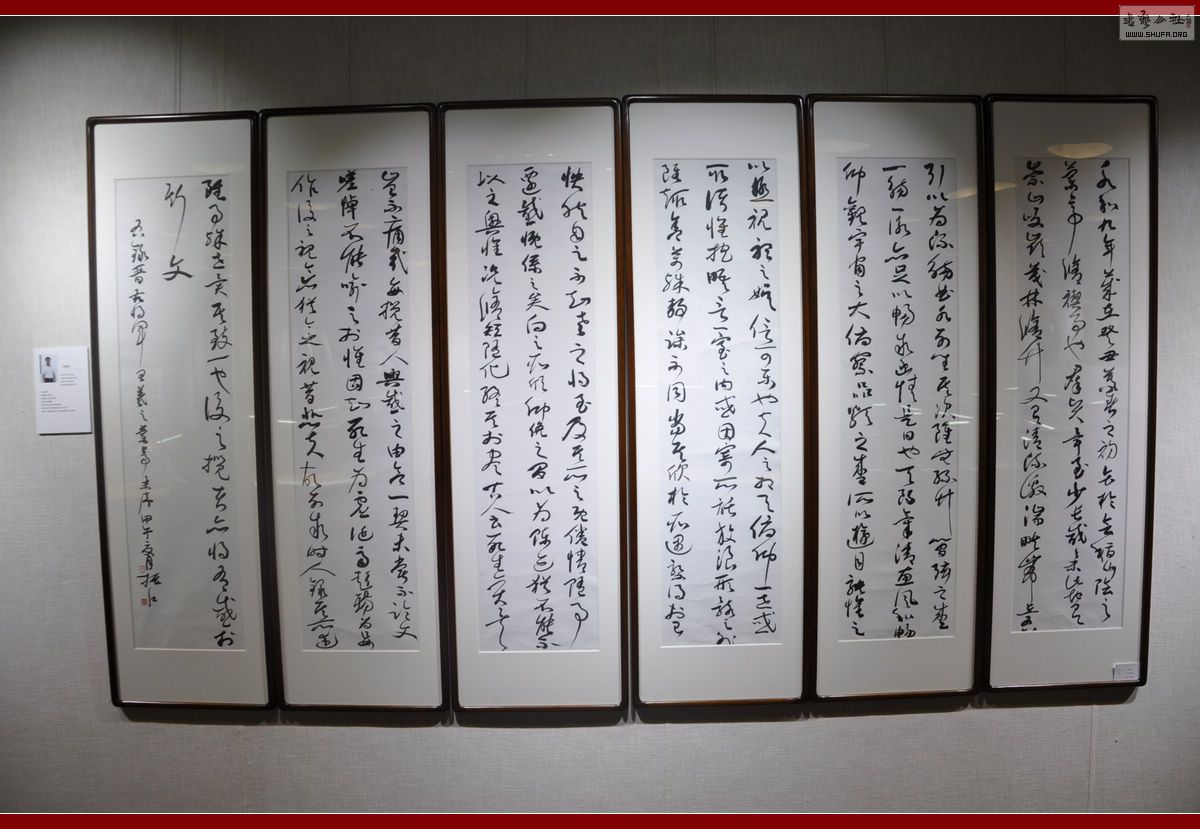 永和九年歲在癸丑暮春之初會於會稽山陰之
蘭亭脩禊事也群賢畢至少長咸集此地有
崇山峻嶺茂林脩竹又有清流激湍映帶左右
引以為流觴曲水列坐其次雖無絲竹管弦之盛
一觴一詠亦足以暢敘幽情是日也天朗氣清惠風和暢
仰觀宇宙之大俯察品類之盛所以遊目騁懷足
以極視聽之娛信可樂也夫人之相與俯仰一世或
取諸懷抱晤言一室之內或因寄所託放浪形骸之外
雖趣舍萬殊靜躁不同當其欣於所遇暫得於己
快然自足不知老之將至及其所之既倦情隨事
遷感慨係之矣向之所欣俯仰之間以為陳迹猶不能不
以之興懷況脩短隨化終期於盡古人云死生亦大矣
豈不痛哉每攬昔人興感之由若合一契未嘗不臨文
嗟悼不能喻之於懷固知死生為虛誕齊彭殤為妄
作後之視今亦猶今之視昔悲夫故列敘時人錄其所述
雖事殊世異其致一也後之攬者亦將有感於
斯文
右錄晉右將軍王羲之蘭亭集序甲午夏月振江
书艺公社
WWW.SHUFA.ORG